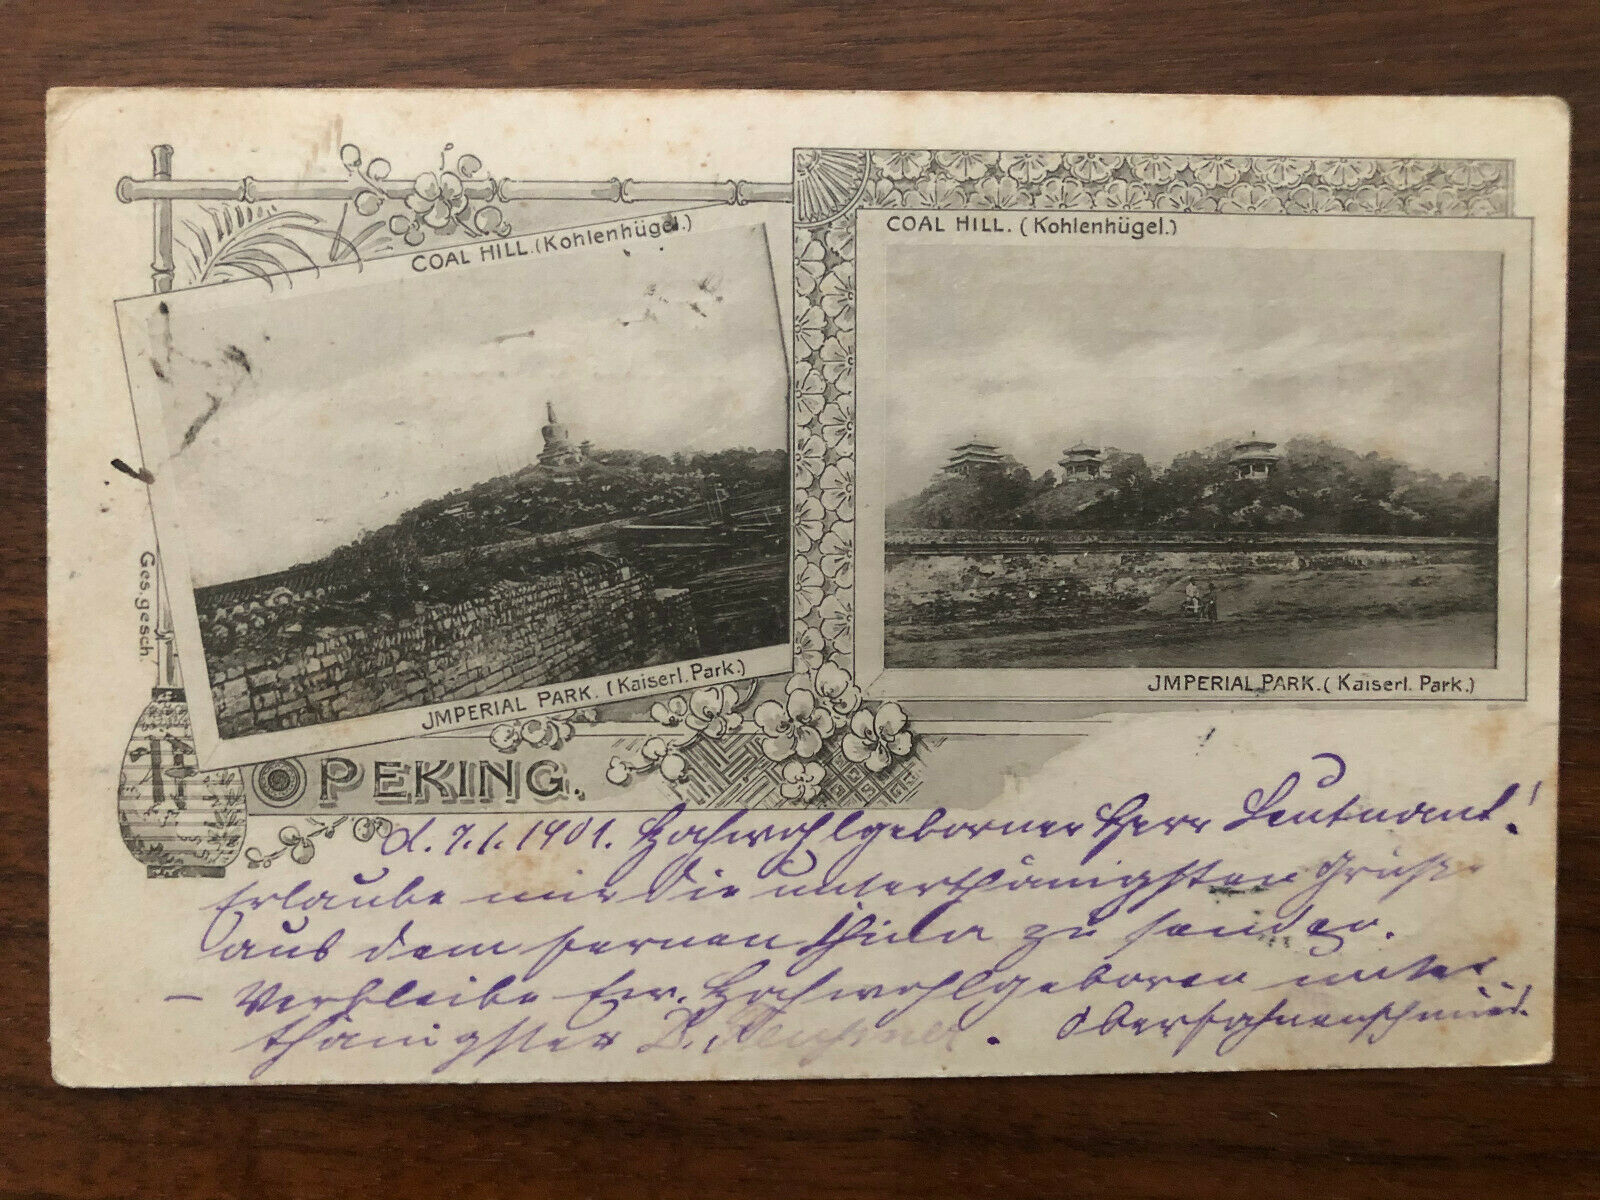 COAL HILL. (Kohlenhügel.)
JMPERIAL PARK. (Kaiserl. Park.)
COAL HILL. (Kohlenhügel.)
JMPERIAL PARK. (Kaiserl. Park.)
Ges. gesch.
PEKING.
d. 7./1. 1901. Hochwohlgeborner Herr Leutnant!
Erlaube mir die unterthänigsten Grüße
aus dem fernen China zu senden.
– Verbleibe Ew. Hochwohlgeboren unter-
thänigster